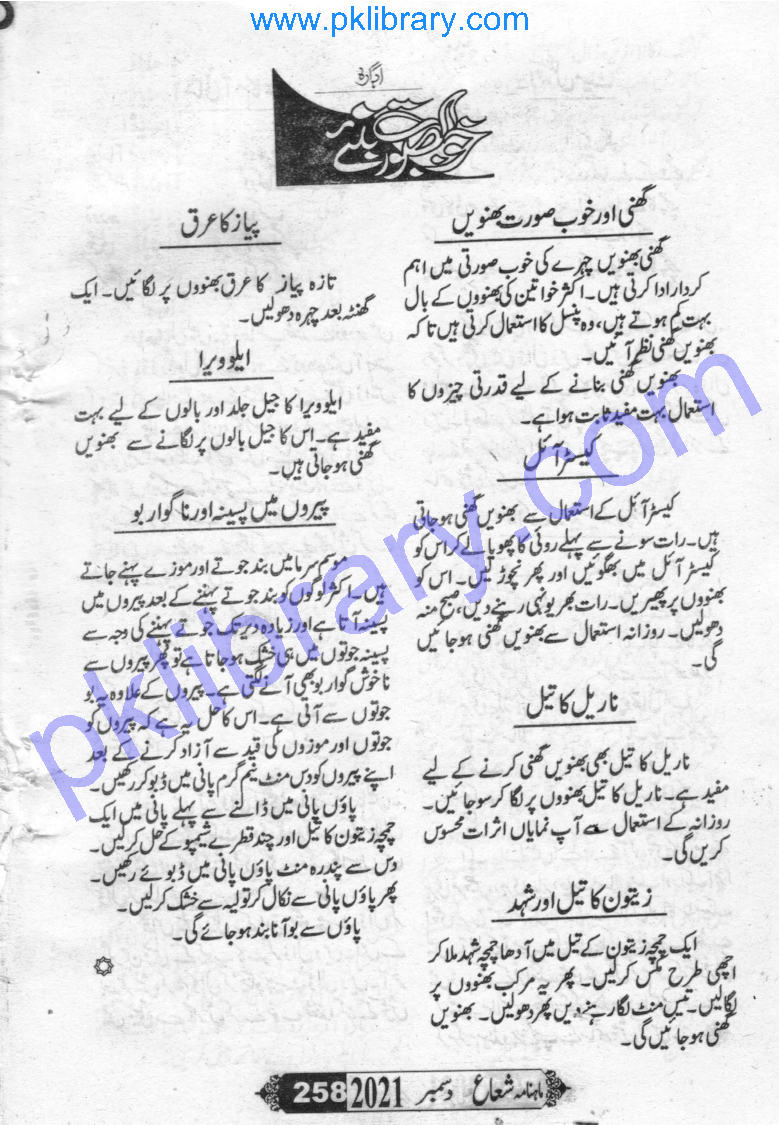 www.pklibrary.com
ادارہ
خوبصورت بنئے
گھنی اور خوب صورت بھنویں
گھنی بھنویں چہرے کی خوب صورتی میں اہم
کردار ادا کرتی ہیں۔ اکثر خواتین کی بھنووں کے بال
بہت کم ہوتے ہیں، وہ پنسل کا استعمال کرتی ہیں تاکہ
بھنویں گھنی نظر آئیں۔
بھنویں گھنی بنانے کے لیے قدرتی چیزوں کا
استعمال بہت مفید ثابت ہوا ہے۔
کیسٹر آئل
کیسٹر آئل کے استعمال سے بھنویں گھنی ہو جاتی
ہیں۔ رات سونے سے پہلے روئی کا پھویا لے کر اس کو
کیسٹر آئل میں بھگوئیں اور پھر نچوڑ لیں۔ اس کو
بھنووں پر پھیریں۔ رات بھر یونہی رہنے دیں، صبح منہ
دھولیں۔ روزانہ استعمال سے بھنویں گھنی ہو جائیں
گی۔
ناریل کا تیل
ناریل کا تیل بھی بھنویں گھنی کرنے کے لیے
مفید ہے۔ ناریل کا تیل بھنووں پر لگا کر سو جائیں۔
روزانہ کے استعمال سے آپ نمایاں اثرات محسوس
کریں گی۔
زیتون کا تیل اور شہد
ایک چمچہ زیتون کے تیل میں آدھا چمچہ شہد ملا کر
اچھی طرح مکس کرلیں۔ پھر یہ مرکب بھنووں پر
لگالیں۔ تیس منٹ لگا رہنے دیں پھر دھولیں۔ بھنویں
گھنی ہو جائیں گی۔
پیاز کا عرق
تازہ پیاز کا عرق بھنووں پر لگائیں۔ ایک
گھنٹہ بعد چہرہ دھولیں۔
ایلوویرا
ایلوویرا کا جیل جلد اور بالوں کے لیے بہت
مفید ہے۔ اس کا جیل بالوں پر لگانے سے بھنویں
گھنی ہو جاتی ہیں۔
پیروں میں پسینہ اور ناگوار بو
موسم سرما میں بند جوتے اور موزے پہنے جاتے
ہیں۔ اکثر لوگوں کو بند جوتے پہننے کے بعد پیروں میں
پسینہ آتا ہے اور زیادہ دیر تک جوتے پہننے کی وجہ سے
پسینہ جوتوں میں ہی خشک ہو جاتا ہے تو پھر پیروں سے
ناخوش گوار بو بھی آنے لگتی ہے۔ پیروں کے علاوہ یہ بو
جوتوں سے آتی ہے۔ اس کا حل یہ ہے کہ پیروں کو
جوتوں اور موزوں کی قید سے آزاد کرنے کے بعد
اپنے پیروں کو دس منٹ نیم گرم پانی میں ڈبو کر رکھیں۔
پاؤں پانی میں ڈالنے سے پہلے پانی میں ایک
چمچہ زیتون کا تیل اور چند قطرے شیمپو کے حل کرلیں۔
دس سے پندرہ منٹ پاؤں پانی میں ڈبوئے رکھیں۔
پھر پاؤں پانی سے نکال کر تولیہ سے خشک کرلیں۔
پاؤں سے بو آنا بند ہو جائے گی۔
pklibrary.com
ماہنامہ شعاع دسمبر 2021 258